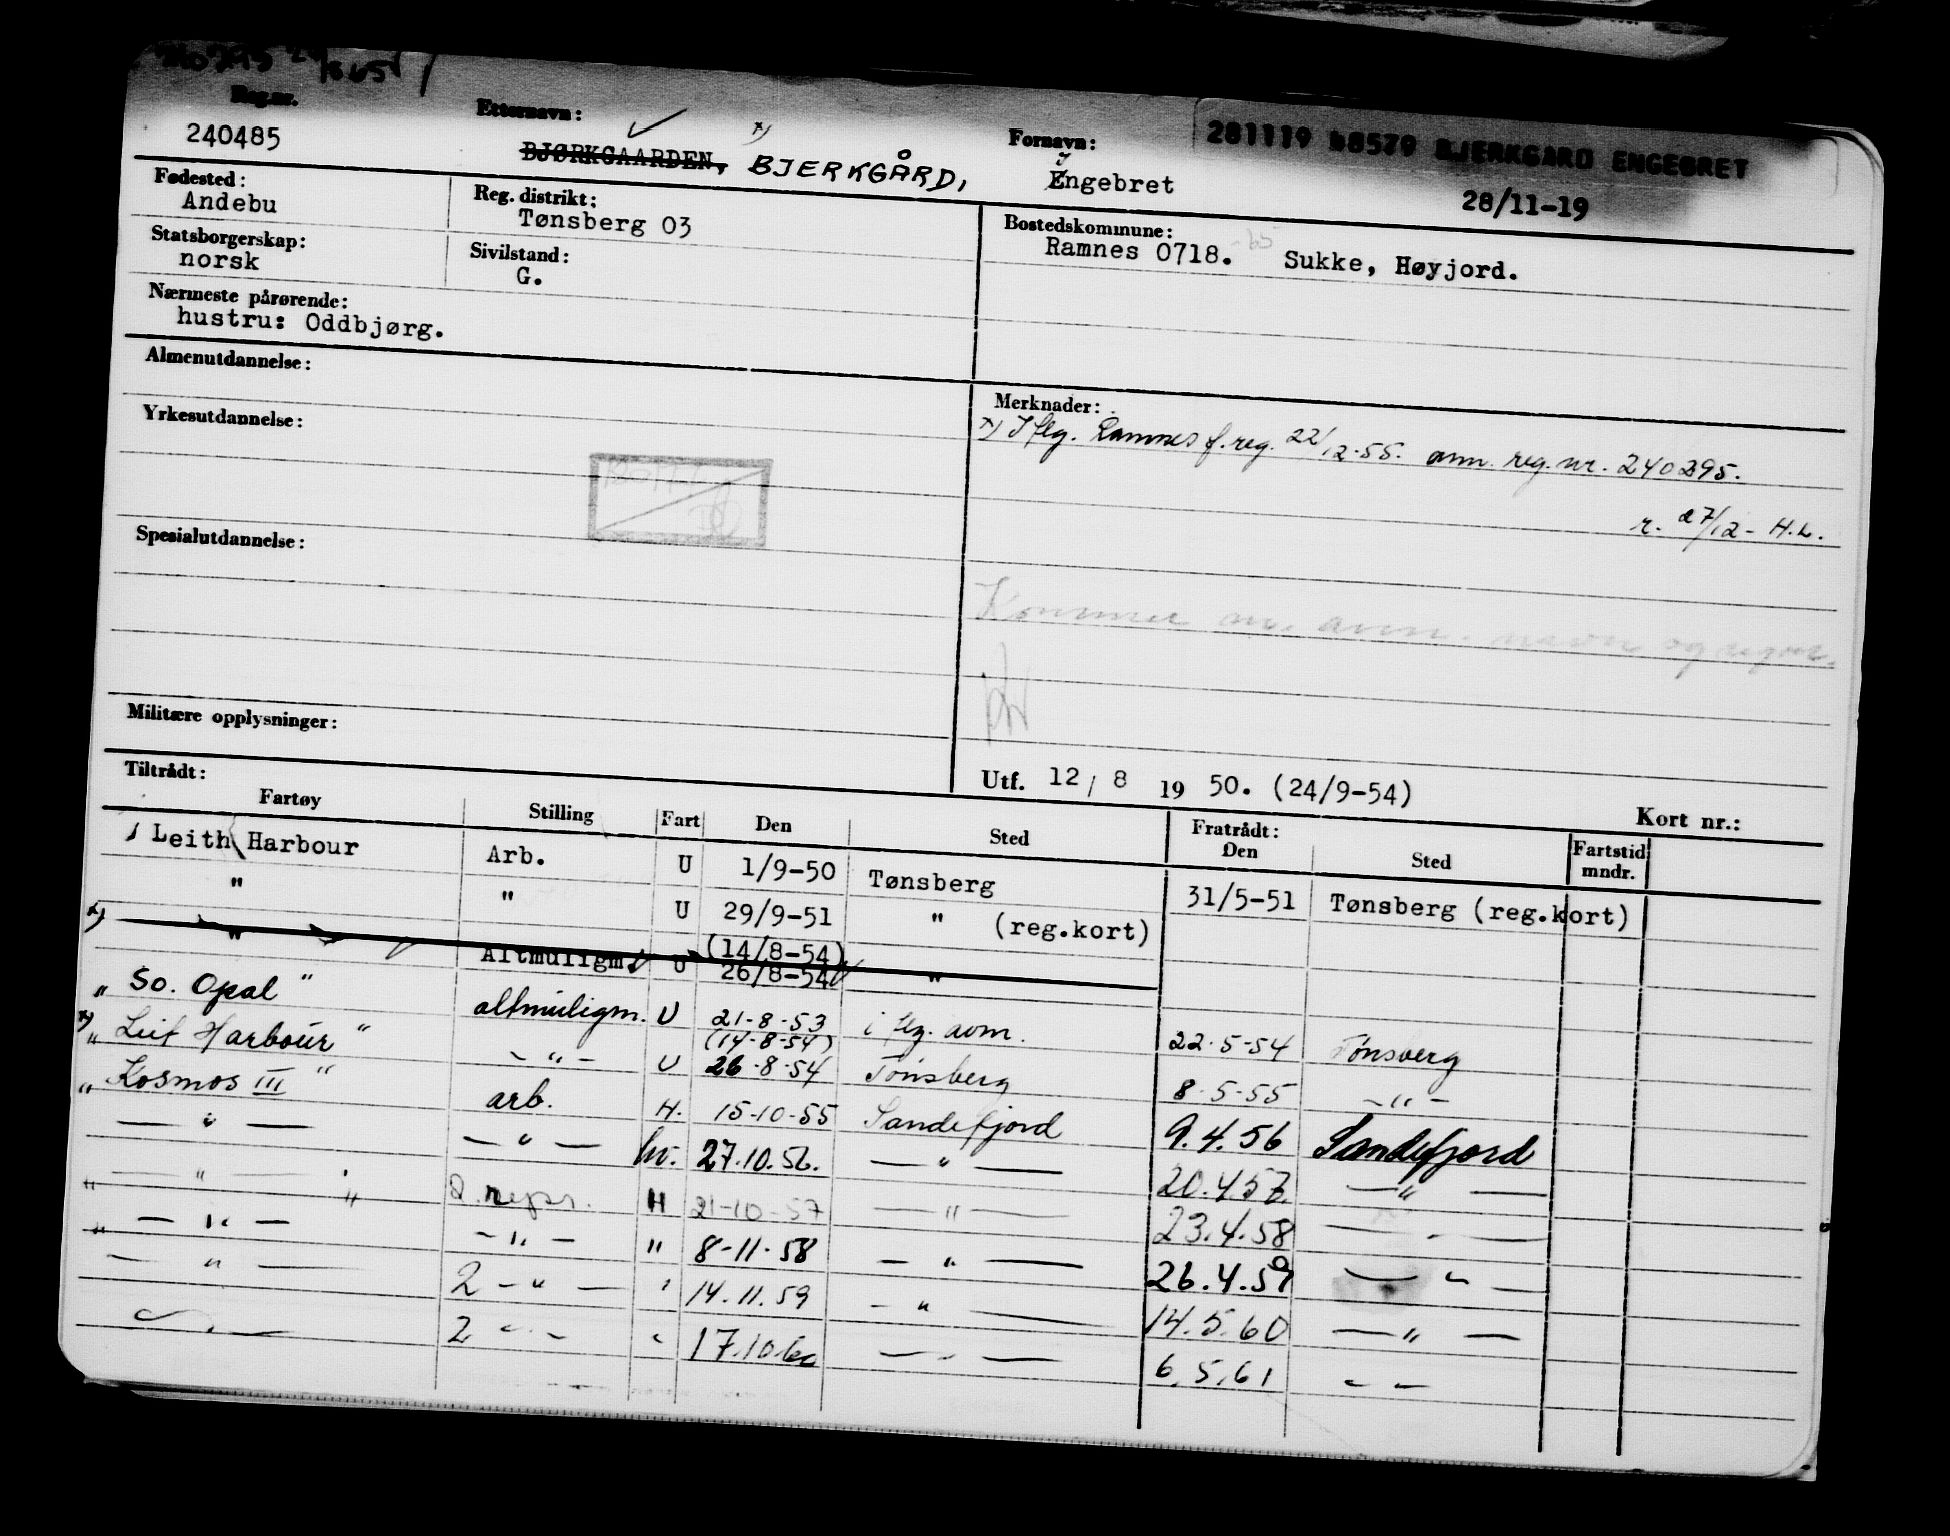 Reg.nr. Etternavn: Fornavn: 281119 48579 BJERKGARD ENGEBRET
240485 BJØRKGAARDEN, BJERKGÅRD, Engebret 28/11-19
Fødested: Reg. distrikt: Bostedskommune:
Andebu Tønsberg 03 Ramnes 0718. Sukke, Høyjord.
Statsborgerskap: Sivilstand:
norsk G.
Nærmeste pårørende:
hustru: Oddbjørg.
Almenutdannelse:
Merknader:
x) Iflg. Ramnes f.reg. 22/12-55. ann. reg. nr. 240295.
r. 27/12- H.L.
Yrkesutdannelse:
Spesialutdannelse:
Kommer m. ann. navn og
Militære opplysninger:
Utf. 12/8 1950. (24/9-54)
Kort nr.:
Tiltrådt: Fratrådt:
Fartøy Stilling Fart Den Sted Den Sted Fartstid mndr.
Leith Harbour Arb. U 1/9-50 Tønsberg 31/5-51 Tønsberg (reg.kort)
" " U 29/9-51 " (reg.kort)
x) " Altmuligm. U (14/8-54) 26/8-54 "
" So. Opal " altmuligm. U 21-8-53 i flg. avm. 22-5-54 Tønsberg
x) " Leit Harbour " - " - U (14-8-54) 26-8-54 Tønsberg 8-5-55 - " -
" Kosmos III " arb. H. 15-10-55 Sandefjord 9.4.56 Sandefjord
— " — — " — hv. 27.10.56. — " — 20.4.57. — " —
— " — " 2. repr. H 21-10-57 — " — 23.4.58 — " —
— " — - " - " 8-11-58 — " — 26.4.59 — " —
— " — 2 - " - " 14.11.59 - " — 14.5.60 — " —
— " — 2 - " - " 17.10.60 — " — 6.5.61 - -